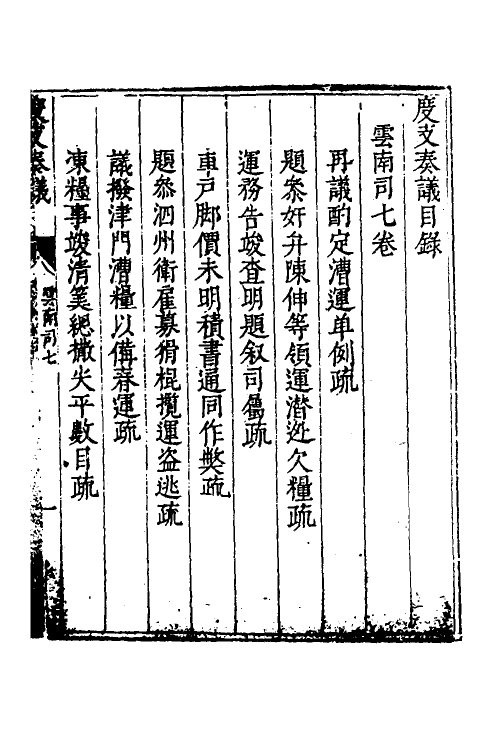 度支奏議目錄
雲南司七卷
再議酌定漕運单例疏
題叅奸弁陳伸等領運潜逃欠糧疏
運務告竣查明題叙司屬疏
車戸脚價未明積書通同作獘疏
題叅泗州衛雇募猾棍攬運盗逃疏
議撥津門漕糧以備春運疏
凍糧事竣清筭總撒失平數目疏
度支奏議
雲南司七
一